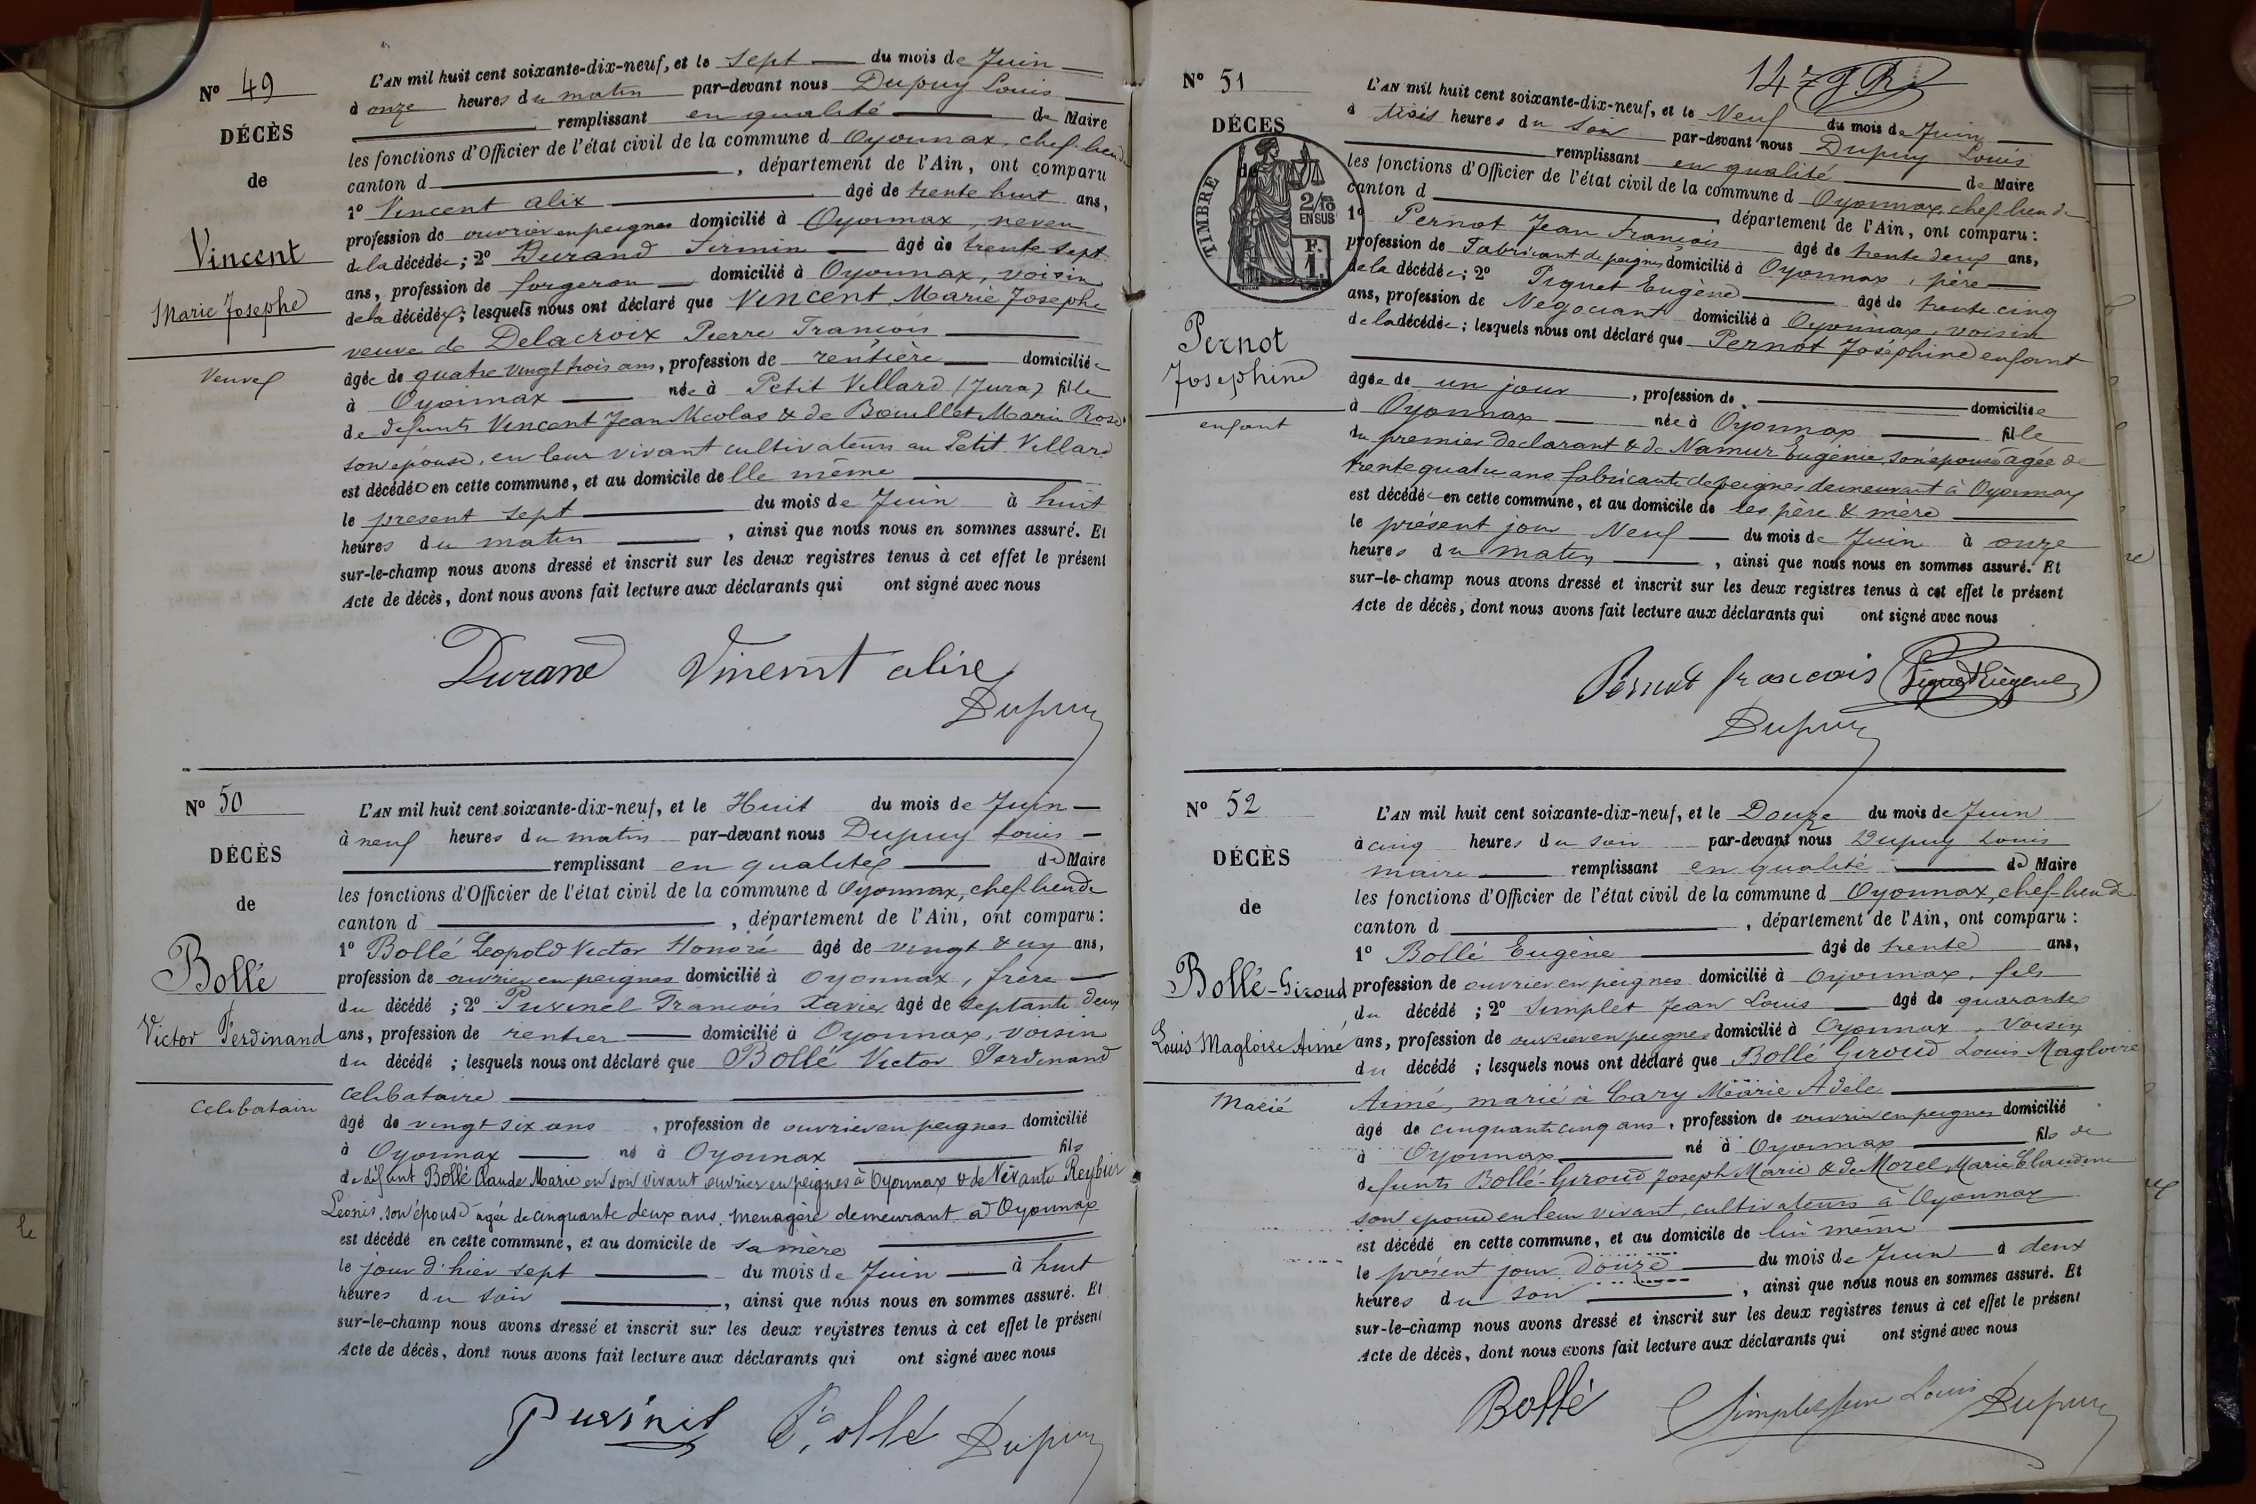 N° 49
DÉCÈS
de
Vincent
Marie Josephe
Veuve
L'AN mil huit cent soixante-dix-neuf, et le sept du mois de Juin
à onze heures du matin par-devant nous Dupuy Louis
remplissant en qualité de Maire
les fonctions d'Officier de l'état civil de la commune d Oyonnax, chef-lieu de
canton d , département de l'Ain, ont comparu
1° Vincent alix âgé de trente huit ans,
profession de ouvrier en peignes domicilié à Oyonnax, neveu
de la décédée ; 2° Durand Firmin âgé de trente sept
ans, profession de forgeron domicilié à Oyonnax, voisin
de la décédée ; lesquels nous ont déclaré que Vincent Marie Josephe
veuve de Delacroix Pierre Francois
âgée de quatre vingt trois ans, profession de rentière domiciliée
à Oyonnax née à Petit Villard (Jura) fille
de defunts Vincent Jean Nicolas & de Bouillet Marie Rose
son épouse, en leur vivant cultivateurs au Petit Villard
est décédée en cette commune, et au domicile de lle même
le présent sept du mois de Juin à huit
heures du matin , ainsi que nous nous en sommes assuré. Et
sur-le-champ nous avons dressé et inscrit sur les deux registres tenus à cet effet le présent
Acte de décès, dont nous avons fait lecture aux déclarants qui ont signé avec nous
Durand Vincent alix
Dupuy
N° 50
DÉCÈS
de
Bollé
Victor Ferdinand
Celibataire
L'AN mil huit cent soixante-dix-neuf, et le Huit du mois de Juin
à neuf heures du matin par-devant nous Dupuy Louis
remplissant en qualité de Maire
les fonctions d'Officier de l'état civil de la commune d Oyonnax, chef-lieu de
canton d , département de l'Ain, ont comparu :
1° Bollé Leopold Victor Honoré âgé de vingt & un ans,
profession de ouvrier en peignes domicilié à Oyonnax, frère
du décédé ; 2° Puvinel Francois Xavier âgé de septante deux
ans, profession de rentier domicilié à Oyonnax, voisin
du décédé ; lesquels nous ont déclaré que Bollé Victor Ferdinand
Celibataire
âgé de vingt six ans , profession de ouvrier en peignes domicilié
à Oyonnax né à Oyonnax fils
de défunt Bollé Claude Marie en son vivant ouvrier en peignes à Oyonnax & de vivante Reybier
Léonis, son épouse agée de cinquante deux ans, menagère demeurant à Oyonnax
est décédé en cette commune, et au domicile de sa mère
le jour d'hier sept du mois de Juin à huit
heures du soir , ainsi que nous nous en sommes assuré. Et
sur-le-champ nous avons dressé et inscrit sur les deux registres tenus à cet effet le présent
Acte de décès, dont nous avons fait lecture aux déclarants qui ont signé avec nous
Puvinel Bollé Dupuy
147
N° 51
DÉCÈS
de
TIMBRE
2/10
EN SUS
F.
1.
Pernot
Josephine
enfant
L'AN mil huit cent soixante-dix-neuf, et le Neuf du mois de Juin
à trois heures du soir par-devant nous Dupuy Louis
remplissant en qualité de Maire
les fonctions d'Officier de l'état civil de la commune d Oyonnax, chef-lieu de
canton d , département de l'Ain, ont comparu :
1° Pernot Jean François âgé de trente deux ans,
profession de Fabricant de peignes domicilié à Oyonnax, père
de la décédée ; 2° Piquet Eugène âgé de trente cinq
ans, profession de Negociant domicilié à Oyonnax, voisin
de la décédée ; lesquels nous ont déclaré que Pernot Joséphine enfant
âgée de un jour , profession de domiciliée
à Oyonnax née à Oyonnax fille
du premier declarant & de Namur Eugénie, son épouse âgée de
trente quatre ans fabricante de peignes demeurant à Oyonnax
est décédée en cette commune, et au domicile de les père & mère
le présent jour Neuf du mois de Juin à onze
heures du matin , ainsi que nous nous en sommes assuré. Et
sur-le-champ nous avons dressé et inscrit sur les deux registres tenus à cet effet le présent
Acte de décès, dont nous avons fait lecture aux déclarants qui ont signé avec nous
Pernot francois Piquet Eugene
Dupuy
N° 52
DÉCÈS
de
Bollé-Giroud
Louis Magloire Aimé
Marié
L'AN mil huit cent soixante-dix-neuf, et le Douze du mois de Juin
à cinq heures du soir par-devant nous Dupuy Louis
maire remplissant en qualité de Maire
les fonctions d'Officier de l'état civil de la commune d Oyonnax, chef-lieu de
canton d , département de l'Ain, ont comparu :
1° Bollé Eugène âgé de trente ans,
profession de ouvrier en peignes domicilié à Oyonnax, fils
du décédé ; 2° Simplet Jean Louis âgé de quarante
ans, profession de ouvrier en peignes domicilié à Oyonnax, Voisin
du décédé ; lesquels nous ont déclaré que Bollé Giroud Louis Magloire
Aimé, marié à Cary Marie Adele
âgé de cinquante cinq ans, profession de ouvrier en peignes domicilié
à Oyonnax né à Oyonnax fils de
defunts Bollé-Giroud Joseph Marie & de Morel Marie Claudine
son épouse en leur vivant, cultivateurs à Oyonnax
est décédé en cette commune, et au domicile de lui même
le présent jour Douze du mois de Juin à deux
heures du soir , ainsi que nous nous en sommes assuré. Et
sur-le-champ nous avons dressé et inscrit sur les deux registres tenus à cet effet le présent
Acte de décès, dont nous avons fait lecture aux déclarants qui ont signé avec nous
Bollé Simplet Jean Louis Dupuy